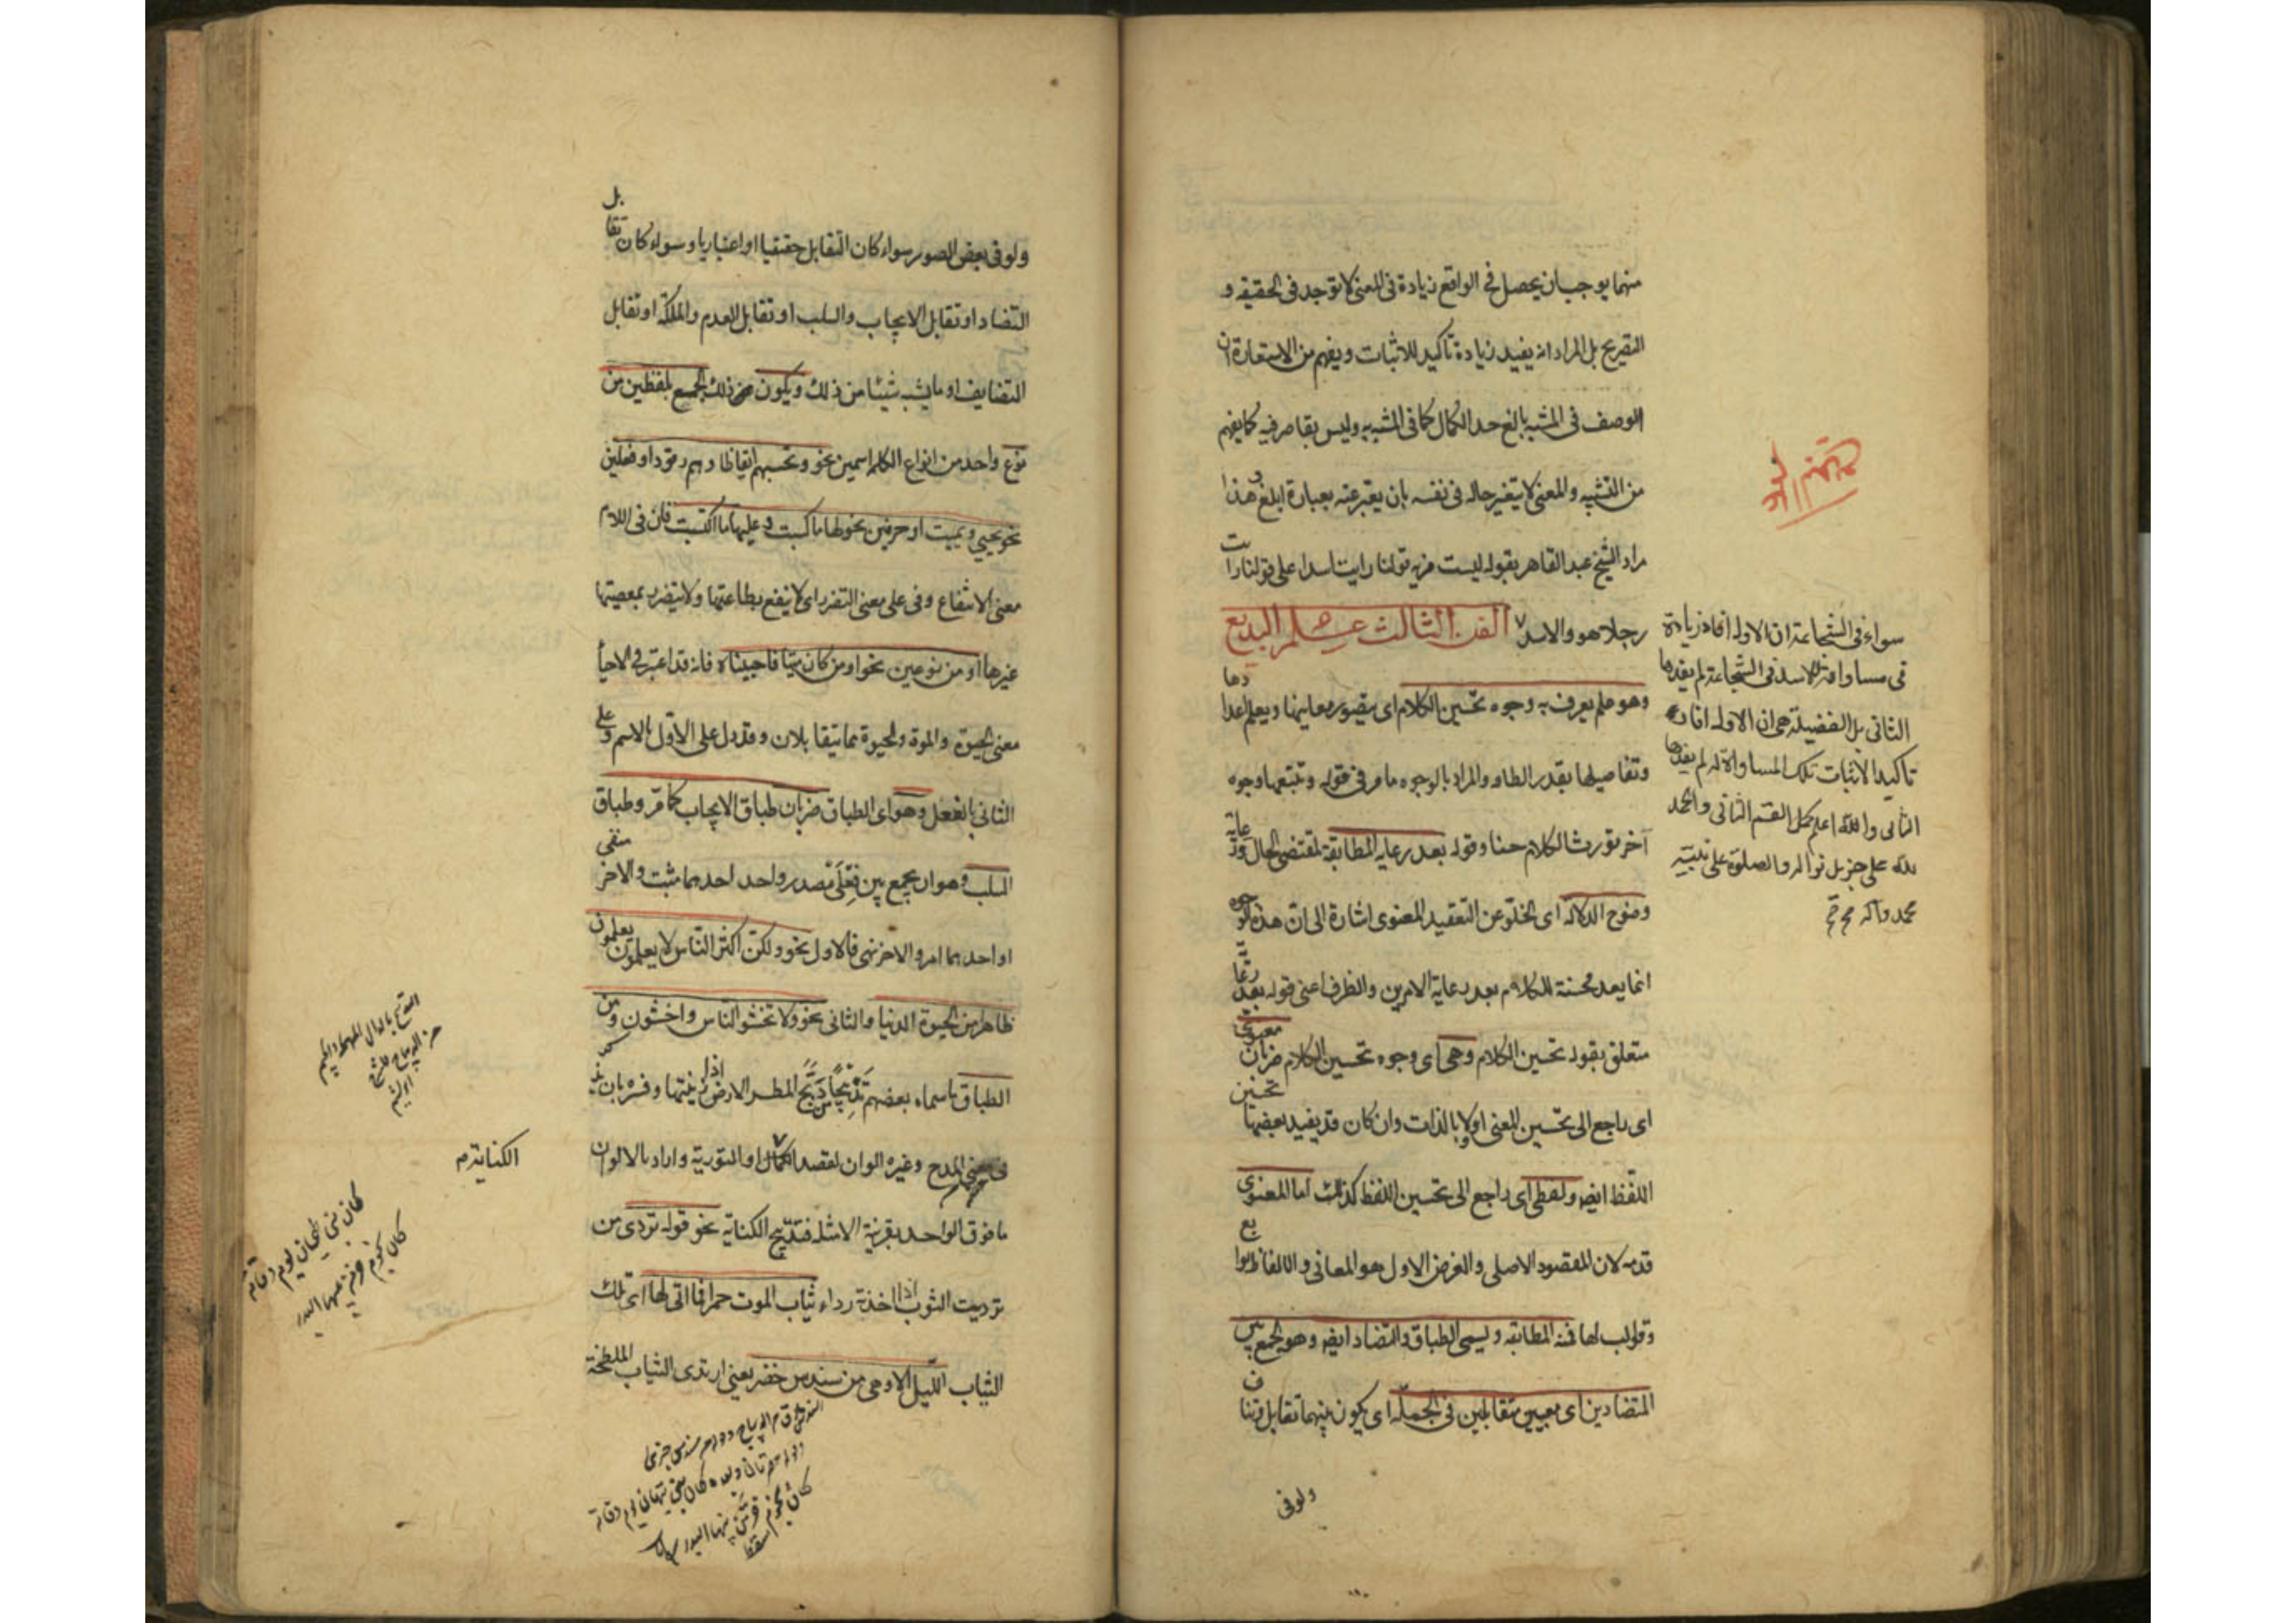 منهما يوجب ان يحصل في الواقع زيادة في المعنى لا توجد في الحقيقة و
التصريح بل المراد انه يفيد زيادة تأكيد للاثبات ويفهم من الاستعارة ان
الوصف في المشبه بالغ حد الكمال كما في المشبه به وليس بقاصر فيه كما يفهم
من التشبيه والمعنى لا يتغير حاله في نفسه بان يعبر عنه بعبارة ابلغ وهذا
مراد الشيخ عبد القاهر بقوله ليست مزية قولنا رايت اسدا على قولنا رايت
رجلا هو والاسد الفن الثالث علم البديع
وهو علم يعرف به وجوه تحسين الكلام اى يتصور معانيها ويعلم اعدادها
وتفاصيلها بقدر الطاقة والمراد بالوجوه ما مر في قوله وتتبعها وجوه
آخر تورث الكلام حسنا وقوله بعد رعاية المطابقة لمقتضى الحال ورعاية
وضوح الدلالة اى الخلو عن التعقيد المعنوى اشارة الى ان هذه الوجوه
انما يعد محسنة للكلام بعد رعاية الامرين والظرف اعنى قوله بعد رعاية
متعلق بقوله تحسين الكلام وهى اى وجوه تحسين الكلام ضربان معنوى
اى راجع الى تحسين المعنى اولا وبالذات وان كان قد يفيد بعضها تحسين
اللفظ ايضا ولفظى اى راجع الى تحسين اللفظ كذلك اما المعنوى
قدمه لان المقصود الاصلى والغرض الاول هو المعانى والالفاظ توابع
وقوالب لها فمنه المطابقة ويسمى الطباق والتضاد ايضا وهو الجمع بين
المتضادين اى معنيين متقابلين في الجملة اى يكون بينهما تقابل وتناف
ولوفى
سواء في الشجاعة ان الاول افاد زيادة
في مساواته للاسد في الشجاعة لم يفدها
الثانى بل الفضيلة هى ان الاول افاد
تأكيدا لاثبات تلك المساواة له لم يفدها
الثانى والله اعلم كمل القسم الثانى والحمد
لله على جزيل نواله والصلوة على نبيه
محمد وآله
ولو في بعض الصور سواء كان التقابل حقيقيا او اعتباريا وسواء كان تقابل
التضاد او تقابل الايجاب والسلب او تقابل العدم والملكة او تقابل
التضايف او ما يشبه شيئا من ذلك ويكون ذلك الجمع بلفظين من
نوع واحد من انواع الكلمة اسمين نحو وتحسبهم ايقاظا وهم رقود او فعلين
نحو يحيي ويميت او حرفين نحو لها ما كسبت وعليها ما اكتسبت فان في اللام
معنى الانتفاع وفى على معنى التضرر اى لا ينتفع بطاعتها ولا يتضرر بمعصيتها
غيرها او من نوعين نحو او من كان ميتا فاحييناه فانه قد اعتبر في الاحيأ
معنى الحيوة والموت والحيوة مما يتقابلان وقد دل على الاول بالاسم وعلى
الثانى بالفعل وهو اى الطباق ضربان طباق الايجاب كما مر وطباق
السلب وهو ان يجمع بين فعلى مصدر واحد احدهما مثبت والاخر منفى
او احدهما امر والاخر نهى فالاول نحو ولكن اكثر الناس لا يعلمون يعلمون
ظاهرا من الحيوة الدنيا والثانى نحو ولا تخشو الناس واخشون ومن
الطباق ما سماه بعضهم تدبيجا من دبج المطر الارض اذا زينتها وفسره بان يذكر
في معنى المدح وغيره الوان لقصد الكناية او التورية واراد بالالوان
ما فوق الواحد بقرينة الامثلة فتدبيج الكناية نحو قوله تردى من
ترديت الثوب اذا اخذته رداء ثياب الموت حمرا فما اتى لها اى تلك
الثياب الليل الا وهى من سندس خضر يعنى ارتدى الثياب الملطخة
الكناية